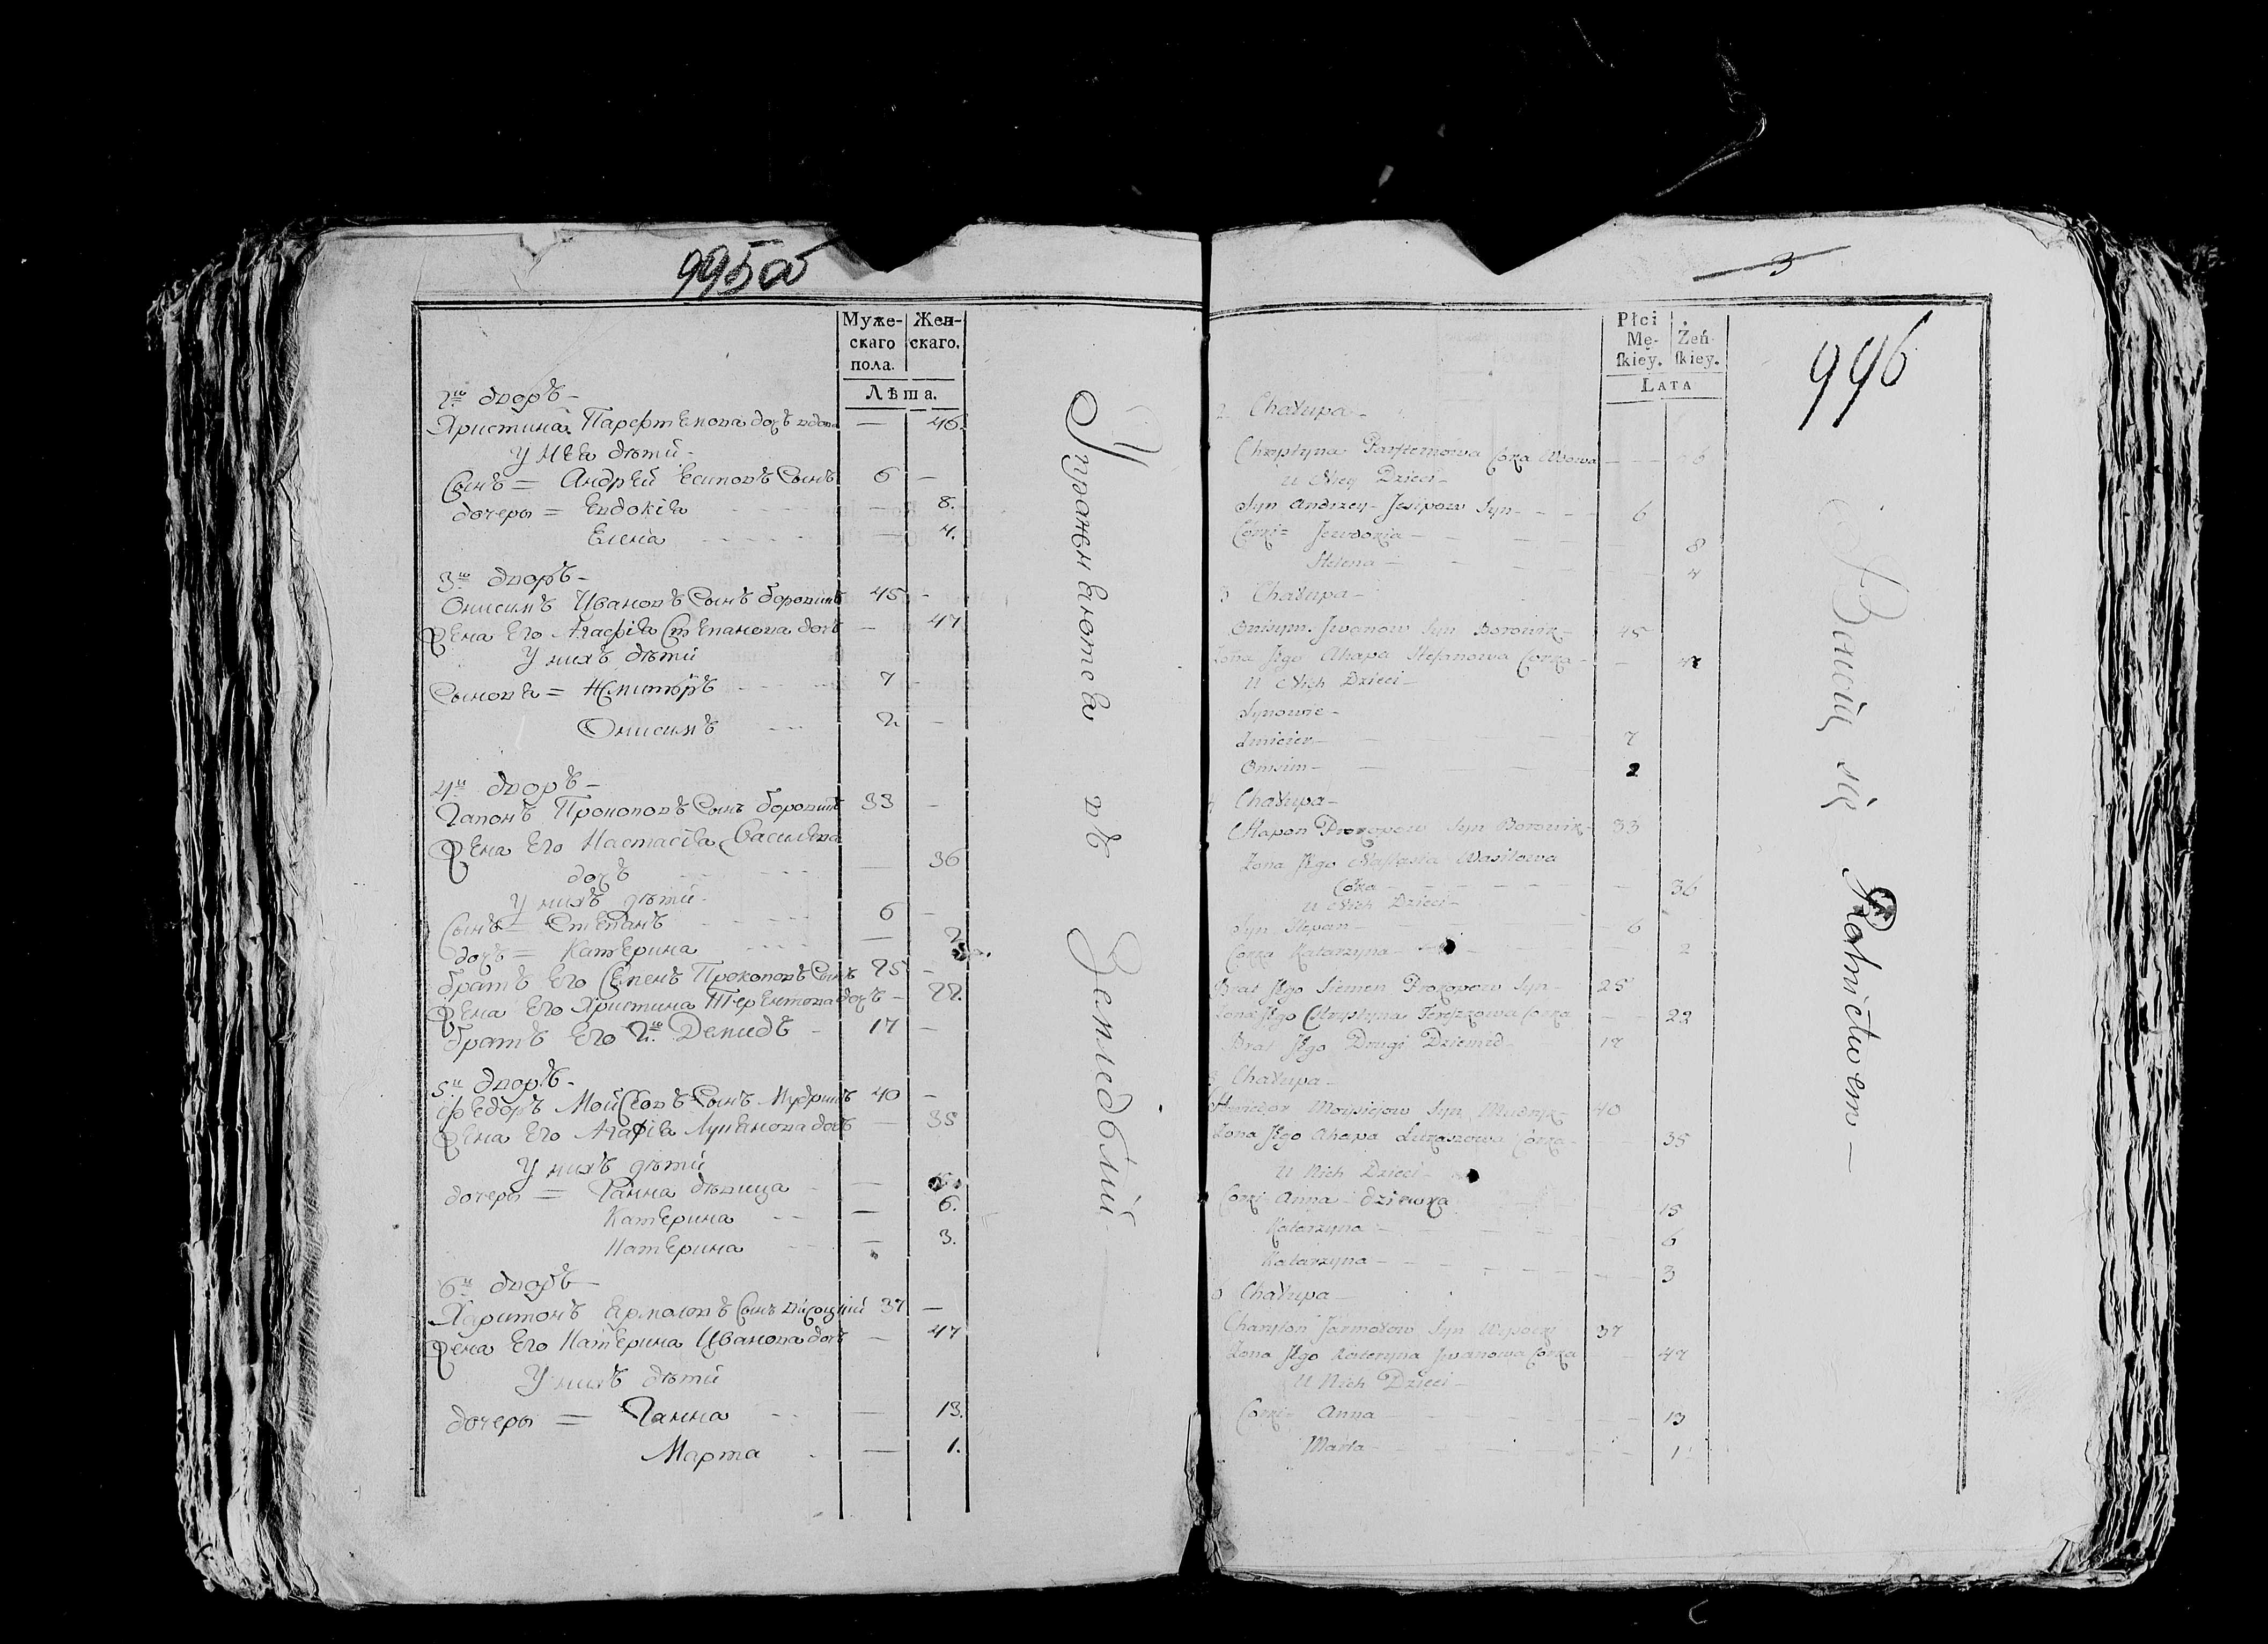 995об
Муже-
скаго
пола.
Жен-
скаго.
Лѣта.
2й дворъ -
Христина Парфтенова дочь вдова — 46.
У нея дѣти -
Сынъ = Андрей Есиповъ Сынъ 6 -
дочеры = Евдокія — 8.
Елена — 4.
3й дворъ -
Онисимъ Ивановъ Сынъ Боровикъ 45 -
Жена Его Агафія Степанова дочь — 47
У нихъ дѣти
Сыновя = Дмитѣръ 7 -
Онисимъ 2 -
4й дворъ -
Гапонъ Прокоповъ Сынъ Боровикъ 33 -
Жена Его Настасія Василева
дочь — 36
У нихъ дѣти -
Сынъ = Степанъ 6 -
дочь = Катерина — 2
братъ Его Семенъ Прокоповъ Сынъ 25 -
Жена Его Христина Терентова дочь - 22.
братъ Его 2й Демидъ - 17 -
5й дворъ -
Федоръ Мойсеовъ Сынъ Мудрикъ 40 -
Жена Его Агафія Лукянова дочь — 35
У нихъ дѣти
дочеры = Ганна дѣвица —
Катерина — 6.
Катерина — 3.
6й дворъ -
Харитонъ Ермоловъ Сынъ Высоцкий 37 —
Жена Его Катерина Иванова дочь — 47
У нихъ дѣти
дочеры = Ганна — 13.
Марта — 1.
Упражненются въ Земледѣлии
3
996
Płci
Mę-
ſkiey.
Żeń-
ſkiey.
Lata
2 Chałupa -
Chrystyna Parfternowa Corka Wdowa — 6
U Niey Dzieci -
Syn Andrzey Jesipow Syn - 6
Corki = Jewdokia - 8
Helena - 4
3 Chałupa -
Onisym Jwanow Syn Borowik - 45
Zona Jego Ahapa Stefanowa Corka - 47
U Nich Dzieci -
Synowie -
Dmicier - 7
Onisim - 2
Chałupa -
Hapon Prokopow Syn Borowik - 33
Zona Jego Nastasia Wasilowa
Corka - 36
U Nich Dzieci -
Syn Stepan - 6
Corka Katarzyna - 2
Brat Jego Siemen Prokopow Syn - 25
Zona Jego Chrystyna Tereszkowa Corka 22
Brat Jego Drugi Dziemid - 17
5 Chałupa -
Chwiedor Moysiejow Syn Mudryk - 40
Zona Jego Ahapa Łukaszowa Corka - 35
U Nich Dzieci -
Corki Anna - dziewka 15
Katarzyna - 6
Katarzyna - 3
6 Chałupa -
Charyton Jarmołow Syn Wysocki 37
Zona Jego Kateryna Jwanowa Corka 47
U Nich Dzieci -
Corki = Anna 13
Marta 1
Bawią się Rolnictwem -